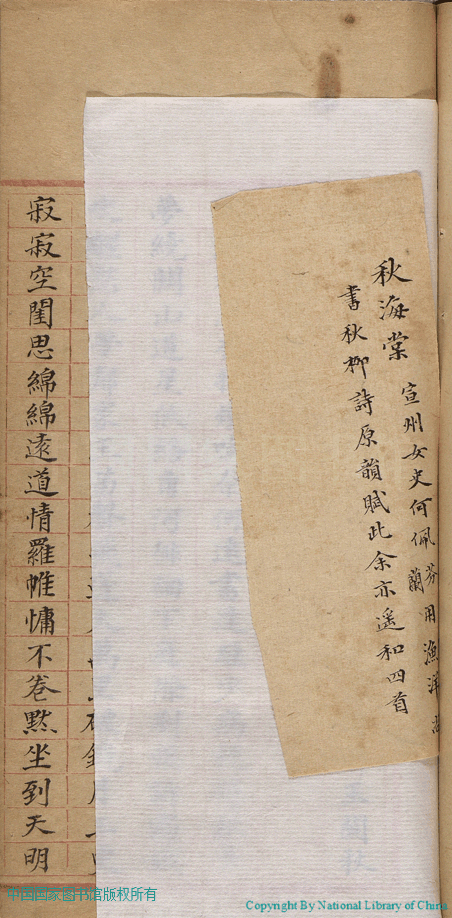 秋海棠 宣州女史何佩芬蘭用漁洋尚
書秋柳詩原韻賦此余亦遥和四首
寂寂空閨思綿綿遠道情羅帷慵不卷默坐到天明
中国国家图书馆版权所有
Copyright By National Library of China